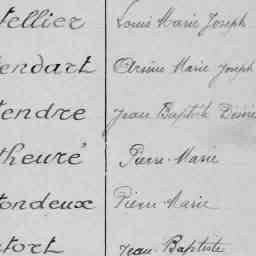 tellier Louis Marie Joseph
endart Arsène Marie Joseph
tendre Jean Baptiste Désiré
theuré Pierre Marie
tondeux Pierre Marie
tort Jean Baptiste